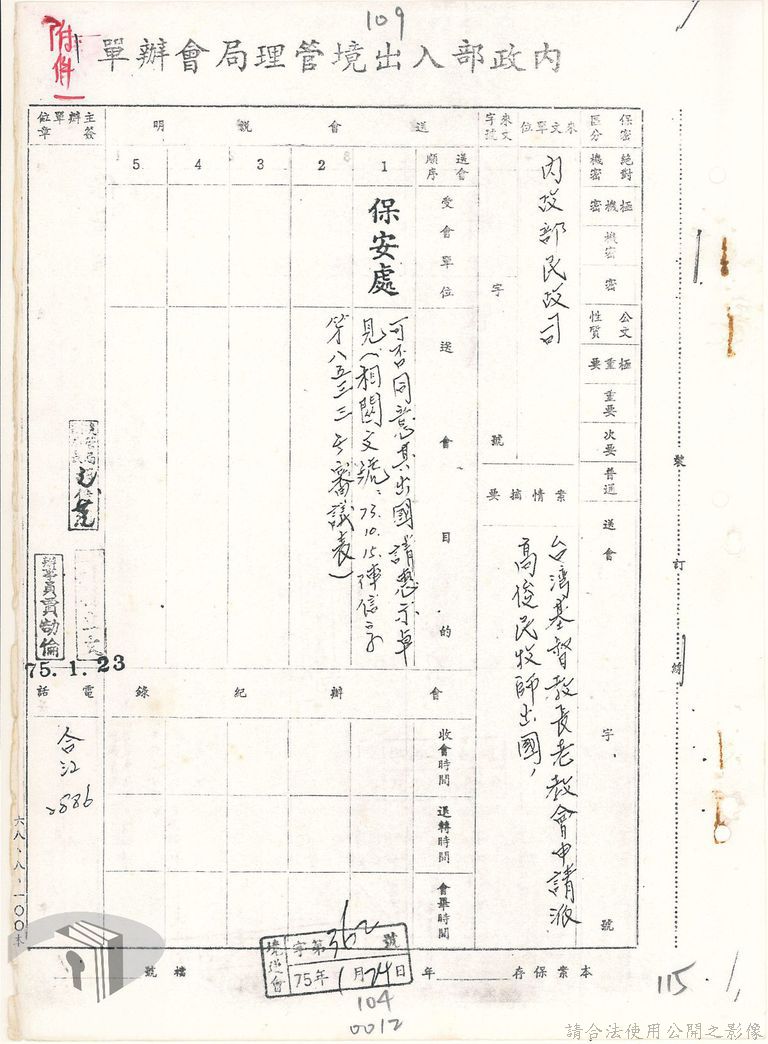 109
附件一
內政部入出境管理局會辦單
保密區分
絕對機密
極機密
機密
密
公文性質
極重要
重要
次要
普通
送會
字
號
來文單位
內政部民政司
來文字號
字
號
案情摘要
台灣基督教長老教會申請派
高俊民牧師出國,
送會說明
送會順序
1
2
3
4
5
受會單位
保安處
送會目的
可否同意其出國請惠示卓
見(相關文號:73.10.15.
審議表)
會辦紀錄
收會時間
退轉時間
會畢時間
主辦單位簽章
辦事員
75.1.23
電話
合江
2886
六八、八、一00本
裝
訂
線
本案保存
年
檔號
境送會
字第362號
75年1月24日
104
0012
115
請合法使用公開之影像